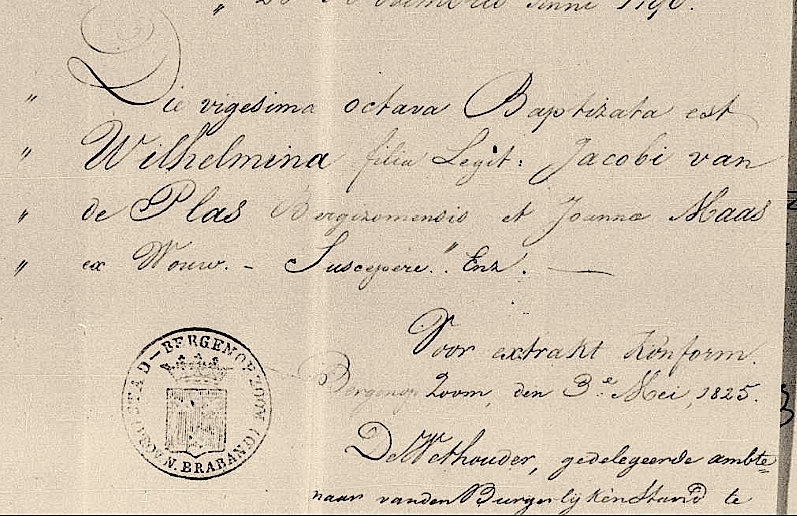 „ 28 Novembris Anni 1796.
„ Die vigesima octava Baptizata est
„ Wilhelmina filia Legit: Jacobi van
„ de Plas Bergizomensis et Joannæ Maas
„ ex Wouw. – Suscepere." Enz. —
Voor extrakt Konform.
Bergenop Zoom, den 3e Mei, 1825.
De Wethouder, gedelegeerde ambte=
naar van den Burgerlijken Stand te
STAD-BERGENOPZOOM
(PROV. N. BRABAND)